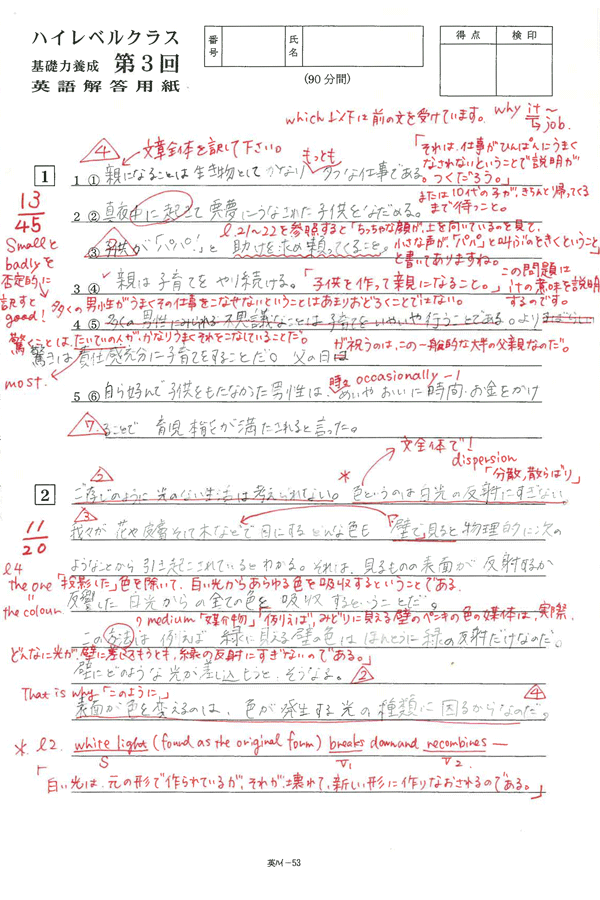 ハイレベルクラス
基礎力養成 第3回
英語解答用紙
番号
氏名
(90分間)
得点
検印
which以下は前の文を受けています。
why it~ job.
④ 文章全体を訳して下さい。
もっとも
「それは、仕事がひんぱんにうまく
なされないということで説明が
つくだろう。」
または10代の子が、きちんと帰ってくる
まで待つこと。
1
13/45
1 ① 親になることは生き物としてかなり な仕事である。
2 ② 真夜中に起きて悪夢にうなされた子供をなだめる。
l.21~22を参照すると「ちっちゃな顔が、上を向いているのを見て、
小さな声が「パパ」と叫ぶのをきくということ」
と書いてありますね。
③ 子供が「パパ!」と 助けを求め頼ってくること。
Smallと
badlyを
否定的に
訳すと
good!
3 ④ 親は子育てをやり続ける。
「子供を作って親になること。」
この問題は
itの意味を説明
するのです。
多くの男性がうまくその仕事をこなせないということはあまりおどろくことではない。
4 ⑤ 多くの男性にみられる不思議なことは子育てをいやいや行うことである。より
驚くことは、たいていの人が、かなりうまくそれをこなしていることだ。
驚きは責任感充分に子育てをすることだ。父の日は
が祝うのは、この一般的な大半の父親なのだ。
most.
5 ⑥ 自ら好んで子供をもたなかった男性は、めいやおいに時間・お金をかけ
時々 occasionally -1
⑦ ることで 育児本能が満たされると言った。
文全体で!
dispersion
「分散,散らばり」
2
11/20
②
ご存じのように光のない生活は考えられない。色というのは白光の反射にすぎない。
③
我々が花や皮膚そして木などで目にするどんな色も「壁で」見ると物理的に次の
ようなことから引き起こされているとわかる。それは、見るものの表面が反射するか
l4
the one
=
the colour
「投影した」色を除いて、白い光からあらゆる色を吸収するということである
反響した白光からの全ての色を吸収するということだ。
medium「媒介物」「例えば、みどりに見える壁のペンキの色の媒体は、実際、
この方法は例えば 緑に見える壁の色はほんとうに緑の反射だけなのだ。
どんなに光が、壁に差し込もうとも、緑の反射にすぎないのである。」
壁にどのような光が差し込もうと、そうなる。②
That is why「このように,」
④
表面が色を変えるのは、色が発生する光の種類に因るからなのだ。
* l2. white light (found as the original form) breaks down and recombines —
S V1 V2.
「白い光は、元の形で作られているが、それが壊れて、新しい形に作りなおされるのである。」
英ハイ-53